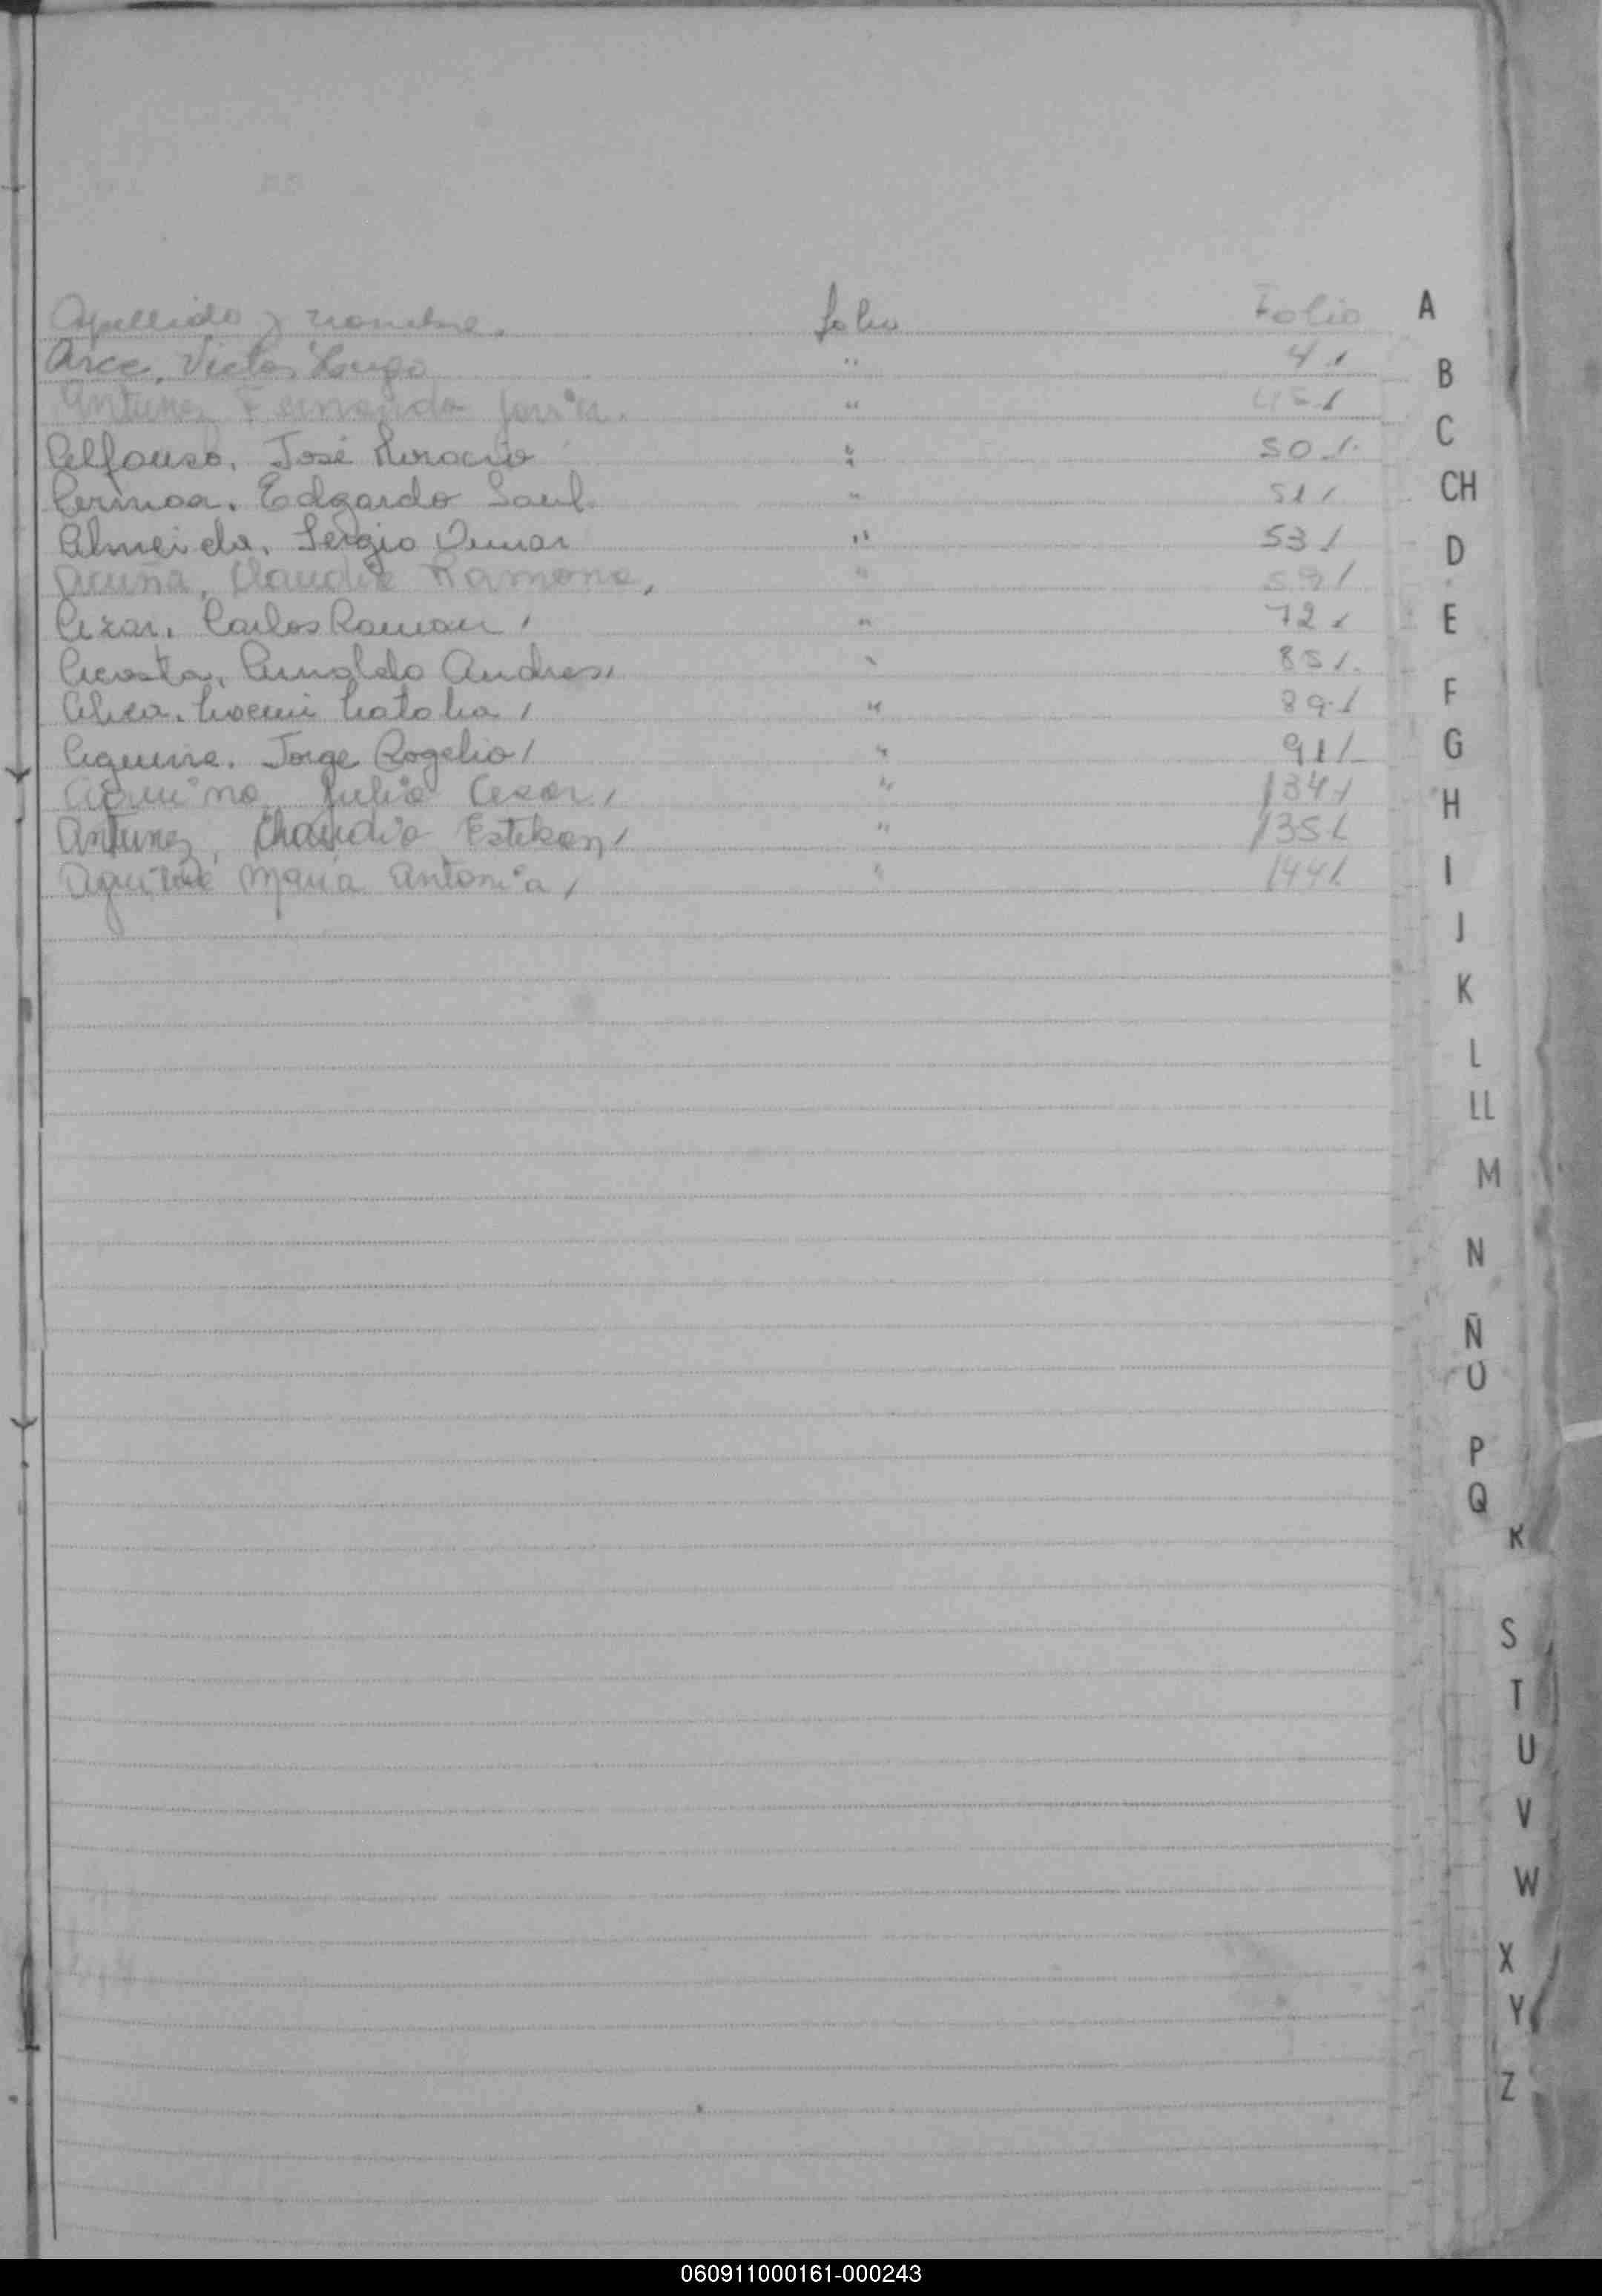 Apellido y nombre. folio Folio
Arce, Victor Hugo " 4 /
Antunez Fernando Javier. " 45 /
Alfonso, José Horacio " 50 /.
Edgardo Saul. " 51 /
Almeida, Sergio Omar " 53 /
Acuña, Claudia Ramona, " 59 /
Carlos Raman / " 72 /
Acosta, Arnaldo Andres, " 85 /.
Noemi Natalia / " 89 /
Aguirre. Jorge Rogelio / " 91 /
Aquino, Julio Cesar, " 134 /
Antunez, Claudio Esteban / " 135 /
Aguirre Maria Antonia / " 144 /
A
B
C
CH
D
E
F
G
H
I
J
K
L
LL
M
N
Ñ
O
P
Q
R
S
T
U
V
W
X
Y
Z
060911000161-000243